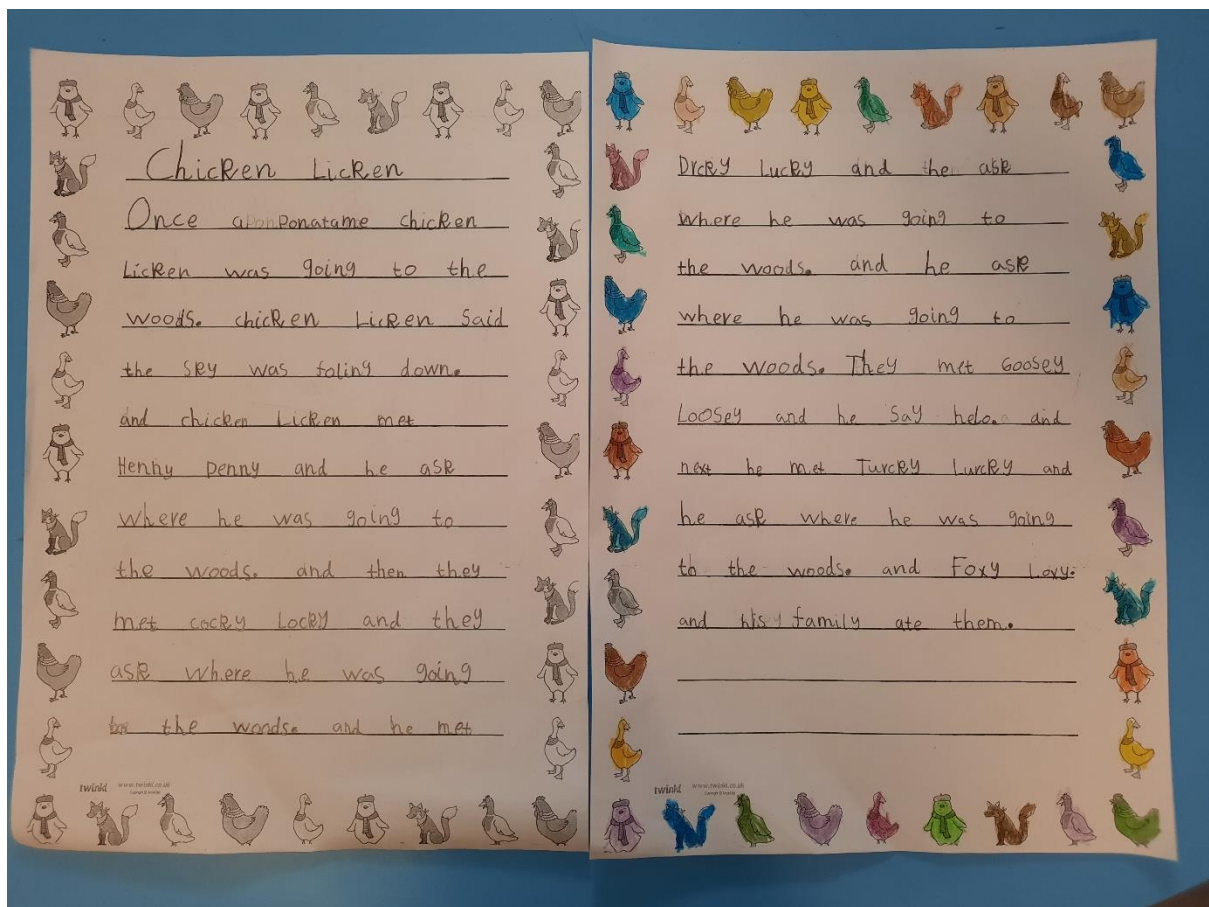 Chicken Licken
Once aponponatame chicken
Licken was going to the
woods. chicken Licken Said
the sky was foling down.
and chicken Licken met
Henny penny and he ask
where he was going to
the woods. and then they
met cocky Locky and they
ask where he was going
the woods. and he met
twinkl www.twinkl.co.uk
Drcky Lucky and the ask
where he was going to
the woods. and he ask
where he was going to
the woods. They met Goosey
Loosey and he say helo. and
next he met Turcky Lurcky and
he ask where he was going
to the woods. and Foxy Loxy.
and his family ate them.
twinkl www.twinkl.co.uk